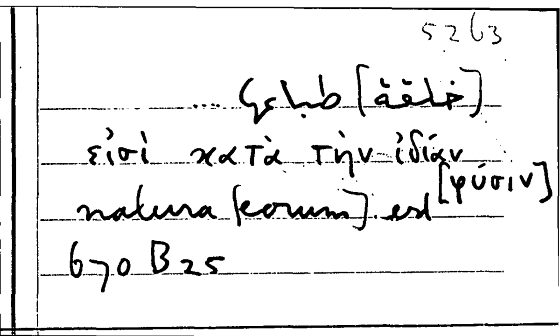 5263
[خلقة] طباع ...
εἰσὶ κατὰ τὴν ἰδίαν
[φύσιν]
natura [eorum] est
670 B 25